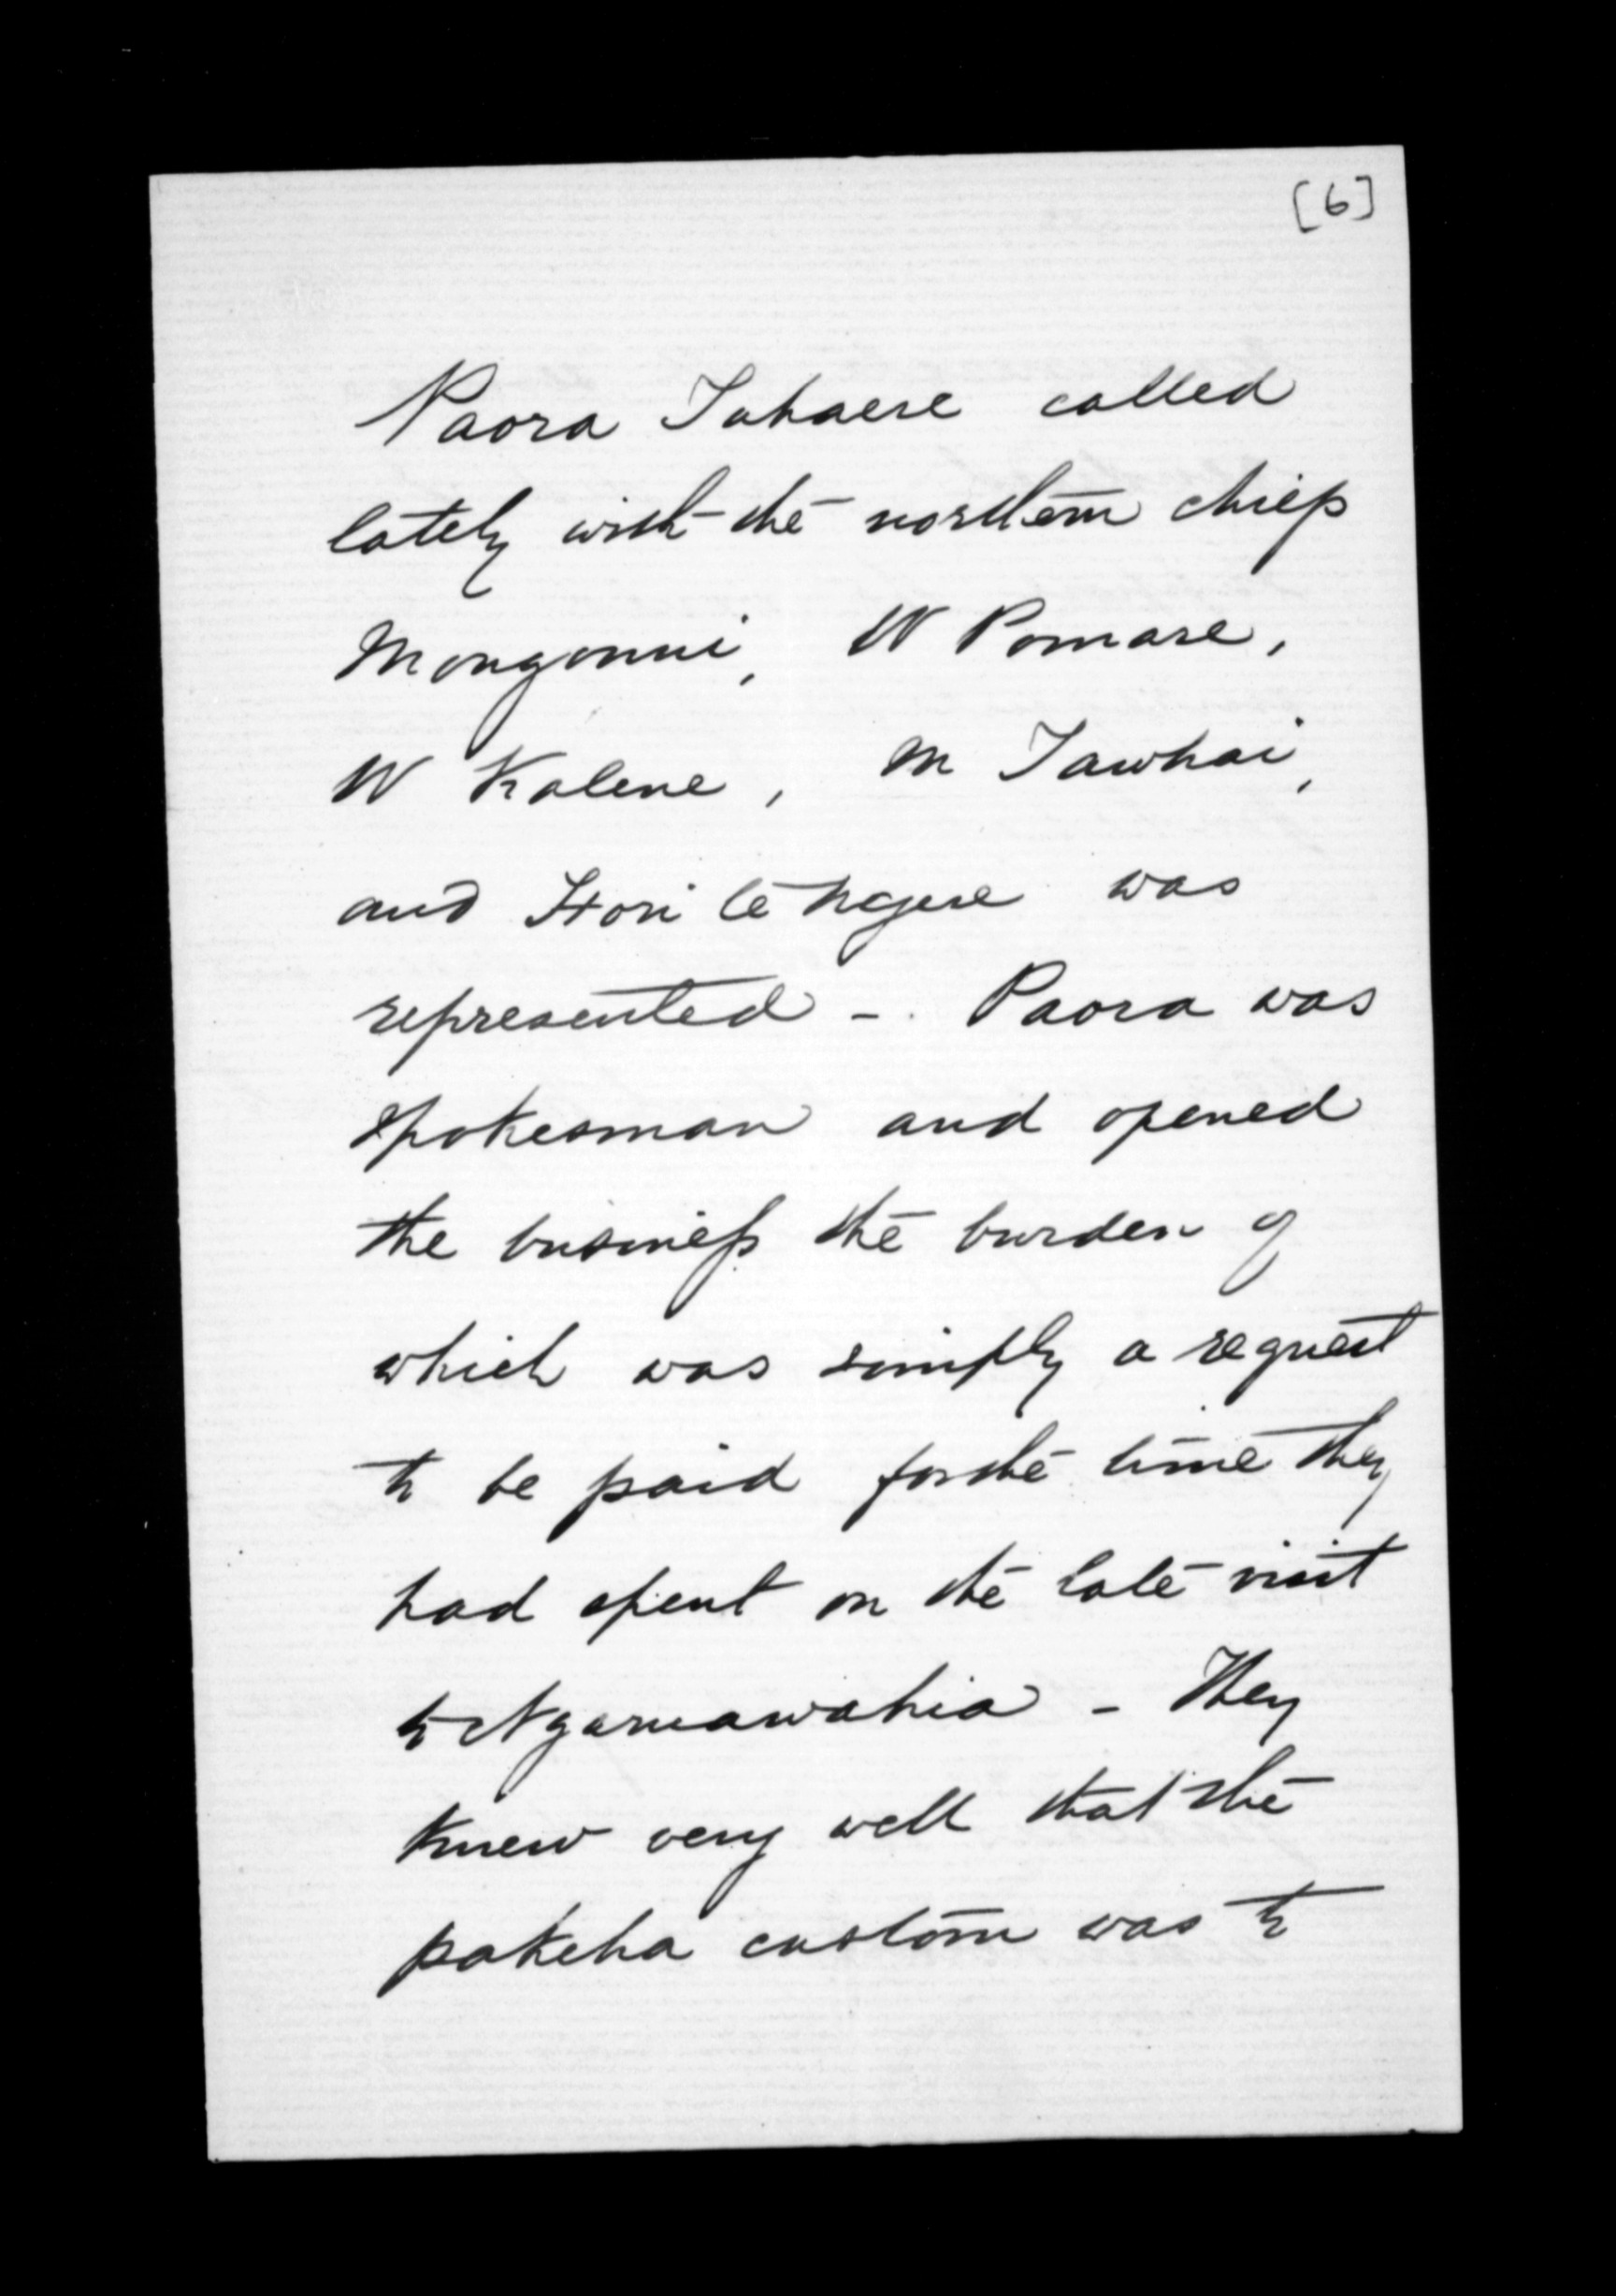 [6]
Paora Tuhaere called
lately with the northern chiefs
Mongonui, W Pomare,
W Katene, M Tawhai,
and Hori te Ngere was
represented -. Paora was
spokesman and opened
the business the burden of
which was simply a request
to be paid for the time they
had spent on the late visit
to Ngaruawahia - They
knew very well that the
pakeha custom was to